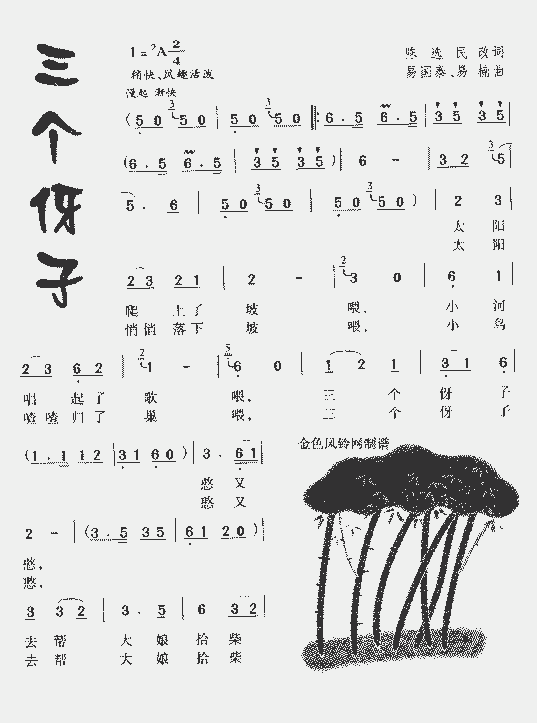 三个伢子
1=♭A 2/4
稍快、风趣活泼
陈选民 改词
易国泰、易楠 曲
慢起 渐快
(5 0 3 5 0 | 5 0 3 5 0 |: 6. 5 6. 5 | 3 5 3 5 |
(6. 5 6. 5 | 3 5 3 5 ) | 6 - | 3 2 3 5 |
5. 6 | 5 0 3 5 0 | 5 0 3 5 0 ) | 2 3 |
太 阳
太 阳
2 3 2 1 | 2 - | 2 3 0 | 6 1 |
爬 上了 坡 喂, 小 河
悄悄 落下 坡 喂, 小 鸟
2 3 6 2 | 2 1 - | 5 6 0 | 1 2 1 | 3 1 6 |
唱 起了 歌 喂, 三 个 伢 子
喳喳 归了 巢 喂, 三 个 伢 子
(1. 1 1 2 | 3 1 6 0 ) | 3. 6 1 |
憨 又
憨 又
金色风铃网制谱
2 - | (3. 5 3 5 | 6 1 2 0 ) |
憨,
憨,
3 3 2 | 3. 5 | 6 3 2 |
去 帮 大 娘 拾 柴
去 帮 大 娘 拾 柴